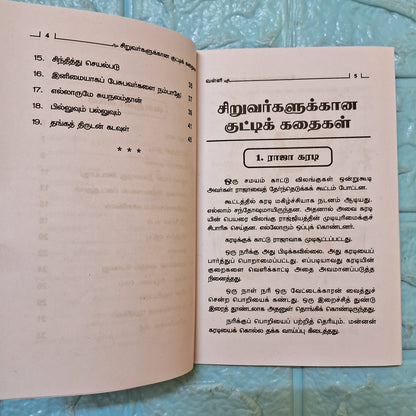 4 சிறுவர்களுக்கான குட்டிக் கதைகள்
15. சிந்தித்து செயல்படு
16. இனிமையாகப் பேசுபவர்களை நம்பாதே 35
17. எல்லாருமே சுயநலம்தான்
18. பில்லுவும் பல்லுவும்
19. தங்கத் திருடன் கடவுள் 45
* * *
வள்ளி 5
சிறுவர்களுக்கான
குட்டிக் கதைகள்
1. ராஜா கரடி
ஒரு சமயம் காட்டு விலங்குகள் ஒன்றுகூடி
அவர்கள் ராஜாவைத் தேர்ந்தெடுக்கக் கூட்டம் போட்டன.
கூட்டத்தில் கரடி மகிழ்ச்சியாக நடனம் ஆடியது.
எல்லாம் சந்தோஷமாயிருந்தன. அதனால் அவை கரடி
யின் பெயரை விலங்கு ராஜ்ஜியத்தின் முடியுரிமைக்குச்
சிபாரிசு செய்தன. எல்லோரும் ஒப்புக் கொண்டனர்.
கரடிக்குக் காட்டு ராஜாவாக முடிசூட்டப்பட்டது.
ஒரு நரிக்கு அது பிடிக்கவில்லை. அது கரடியைப்
பார்த்துப் பொறாமைப்பட்டது. எப்படியாவது கரடியின்
குறைகளை வெளிக்காட்டி அதை அவமானப்படுத்த
நினைத்தது.
ஒரு நாள் நரி ஒரு வேட்டைக்காரன் வைத்துச்
சென்ற பொறியைக் கண்டது. ஒரு இறைச்சித் துண்டு
இரைத் தூண்டலாக அதனுள் தொங்கிக் கொண்டிருந்தது.
நரிக்குப் பொறியைப் பற்றித் தெரியும். மன்னன்
கரடியைக் கொல்ல தக்க வாய்ப்பு கிடைத்தது.